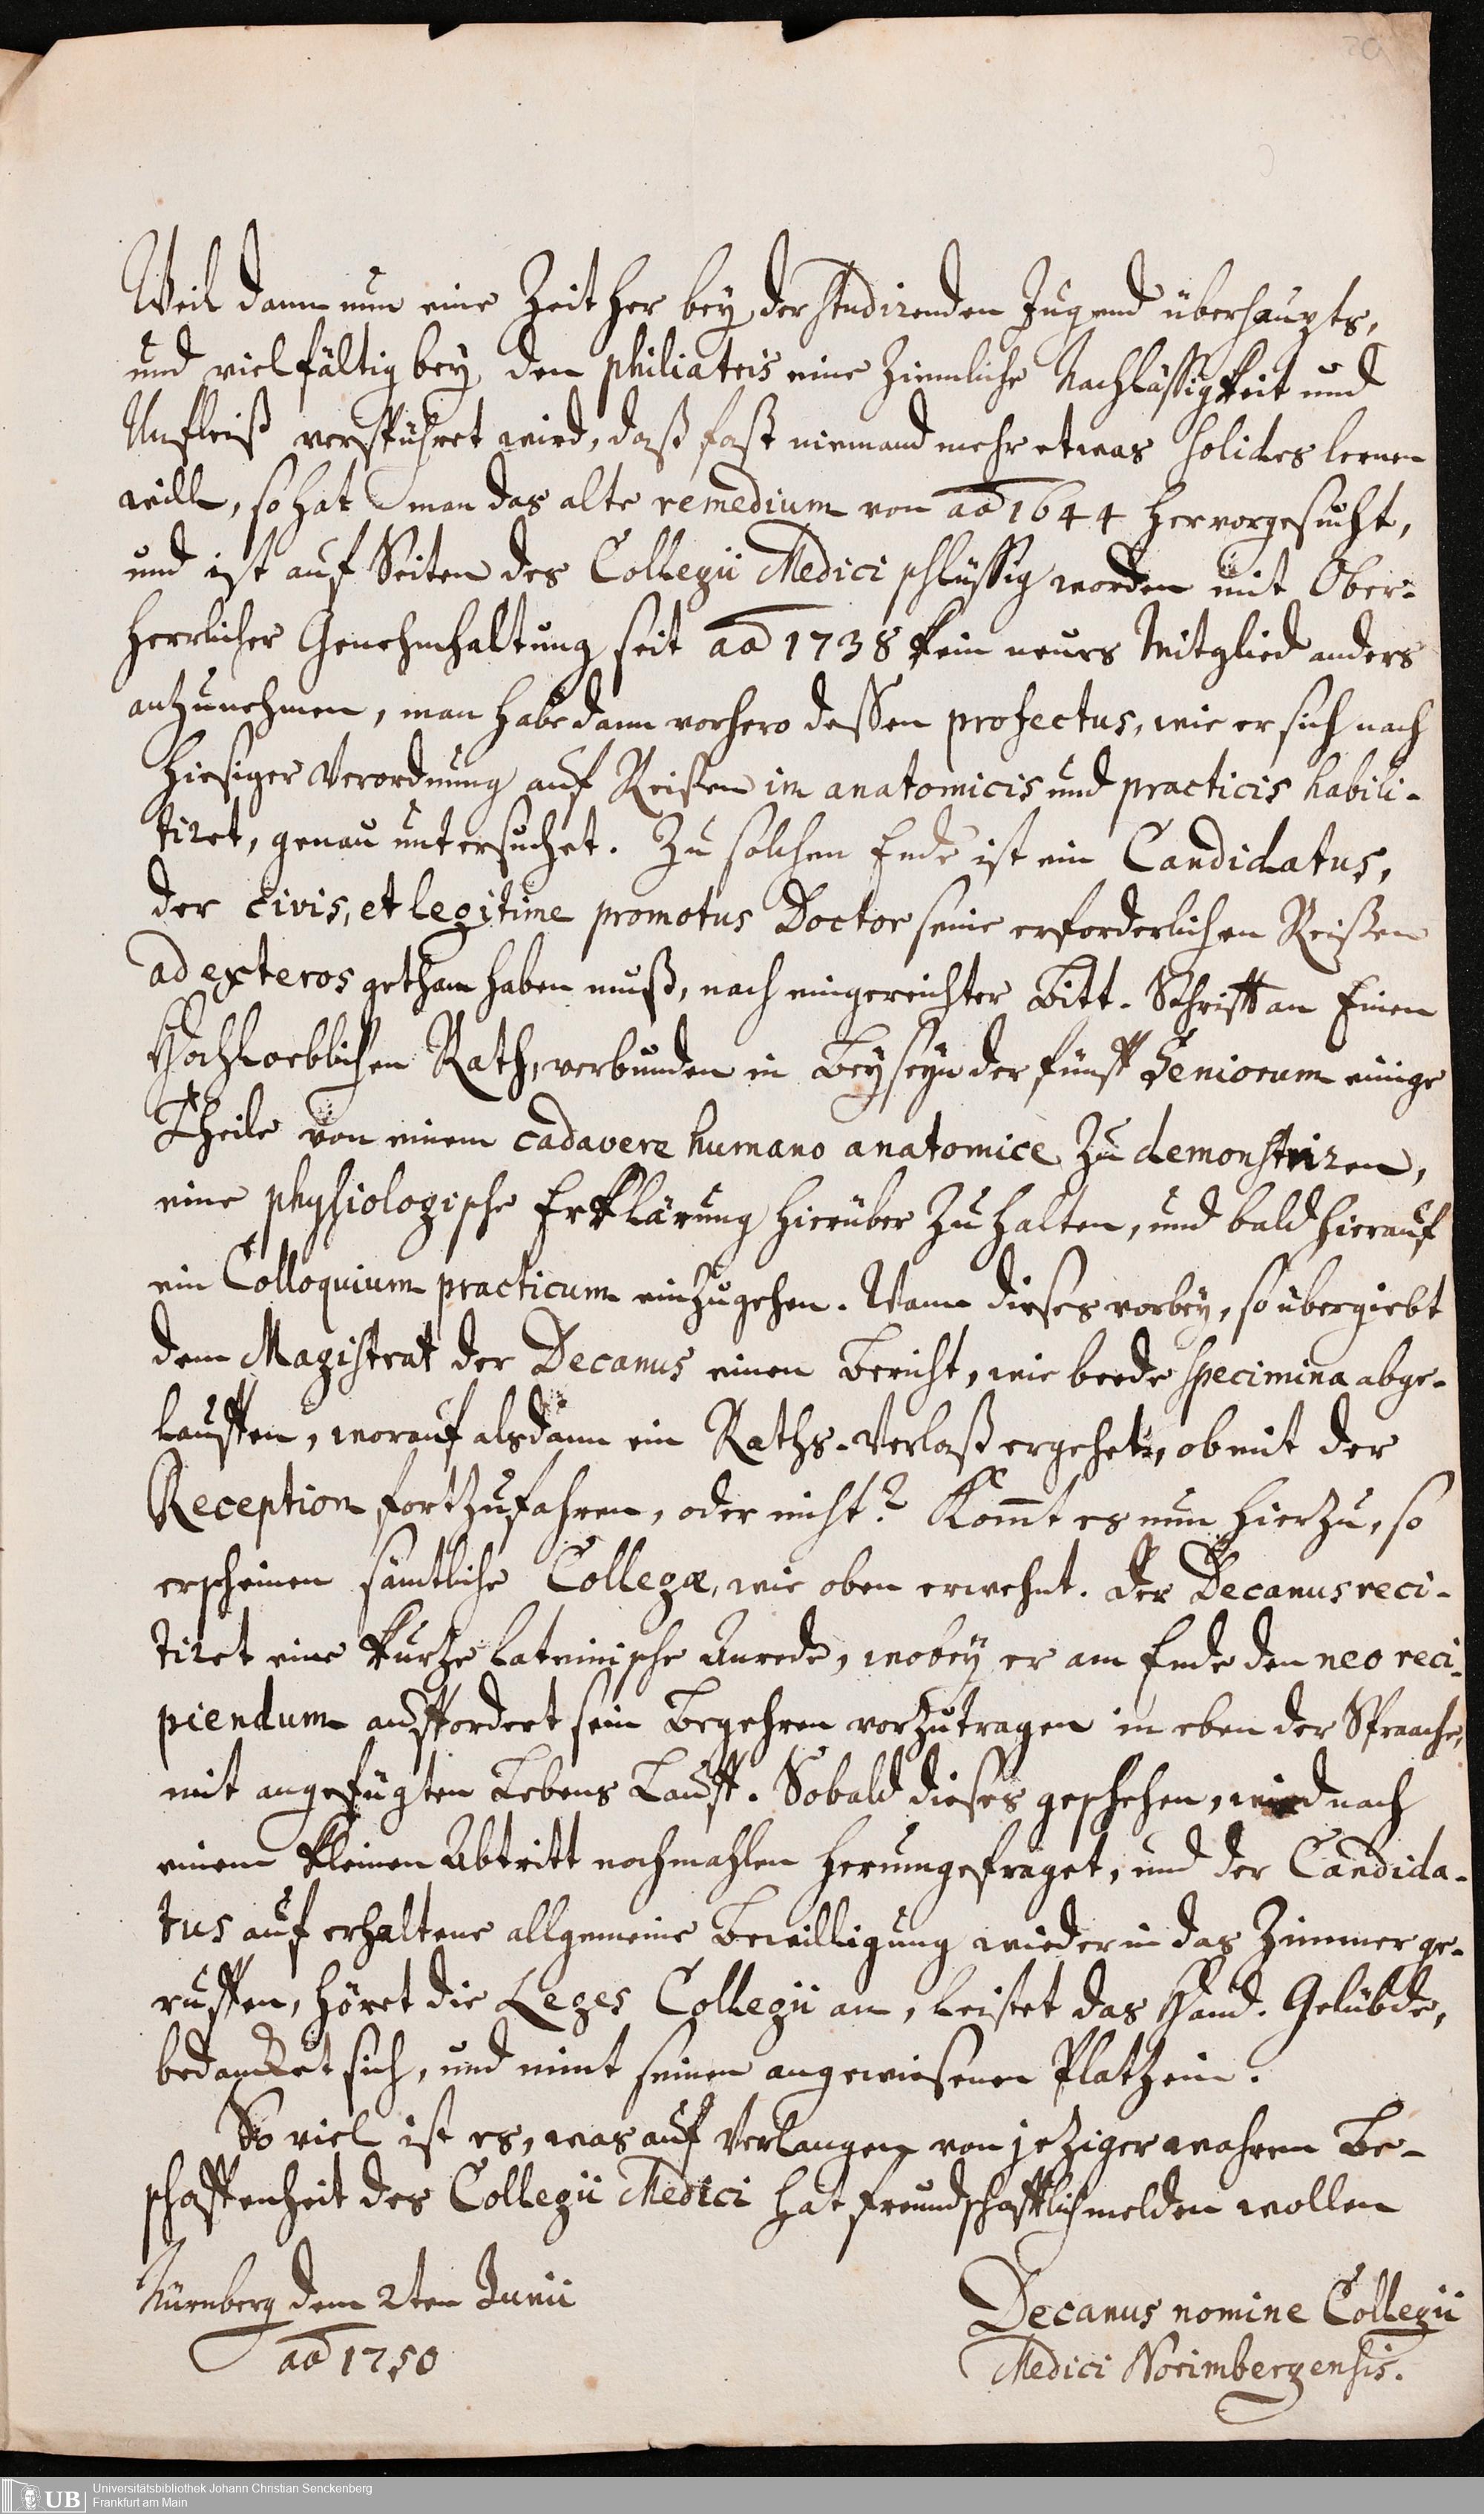 20
Weil dann nun eine Zeit her bey der studirenden Jugend überhaupts,
und vielfältig bey den philiatris eine ziemliche Nachläßigkeit und
Unfleiß verspühret wird, daß fast niemand mehr etwas solides lernen
will, so hat man das alte remedium von aõ 1644 hervorgesucht,
und ist auf Seiten des Collegii Medici schlüßig worden mit Ober-
herrlicher Genehmhaltung seit aõ 1738 kein neues Mitglied anders
anzunehmen, man habe dann vorhero deßen profectus, wie er sich nach
hiesiger Verordnung auf Reißen in anatomicis und practicis habili-
tiret, genau untersuchet. Zu solchen Ende ist ein Candidatus,
der civis, et legitime promotus Doctor seine erforderlichen Reißen
ad exteros gethan haben muß, nach eingereichter Bitt-Schrifft an Einen
HochLoeblichen Rath, verbunden in Beyseyn der fünff Seniorum einige
Theile von einem cadavere humano anatomice zu demonstriren,
eine physiologische Erklärung hierüber zu halten, und bald hierauf
ein Colloquium practicum einzugehen. Wann dieses vorbey, so übergiebt
dem Magistrat der Decanus einen Bericht, wie beede specimina abge-
lauffen, worauf alsdann ein Raths-Verlaß ergehet, ob mit der
Reception fortzufahren, oder nicht? Kom̃t es nun hierzu, so
erscheinen sämtliche Collegæ, wie oben erwehnt. Der Decanus reci-
tiret eine kurze lateinische Anrede, wobey er am Ende den neo reci-
piendum auffordert sein Begehren vorzutragen in eben der Spraache,
mit angefügten Lebens Lauff. Sobald dieses geschehen, wird nach
einem kleinen Abtritt nochmahlen herumgefraget, und der Candida-
tus auf erhaltene allgemeine Bewilligung wieder in das Zimmer ge-
ruffen, höret die Leges Collegii an, leistet das Hand-Gelübde,
bedancket sich, und nimt seinen angewiesenen Platz ein.
So viel ist es, was auf Verlangen von jetziger wahren Be-
schaffenheit des Collegii Medici hat freundschafftlich melden wollen
Nürnberg dem 2ten Junii
aõ 1750
Decanus nomine Collegii
Medici Norimbergensis.
UB
Universitätsbibliothek Johann Christian Senckenberg
Frankfurt am Main